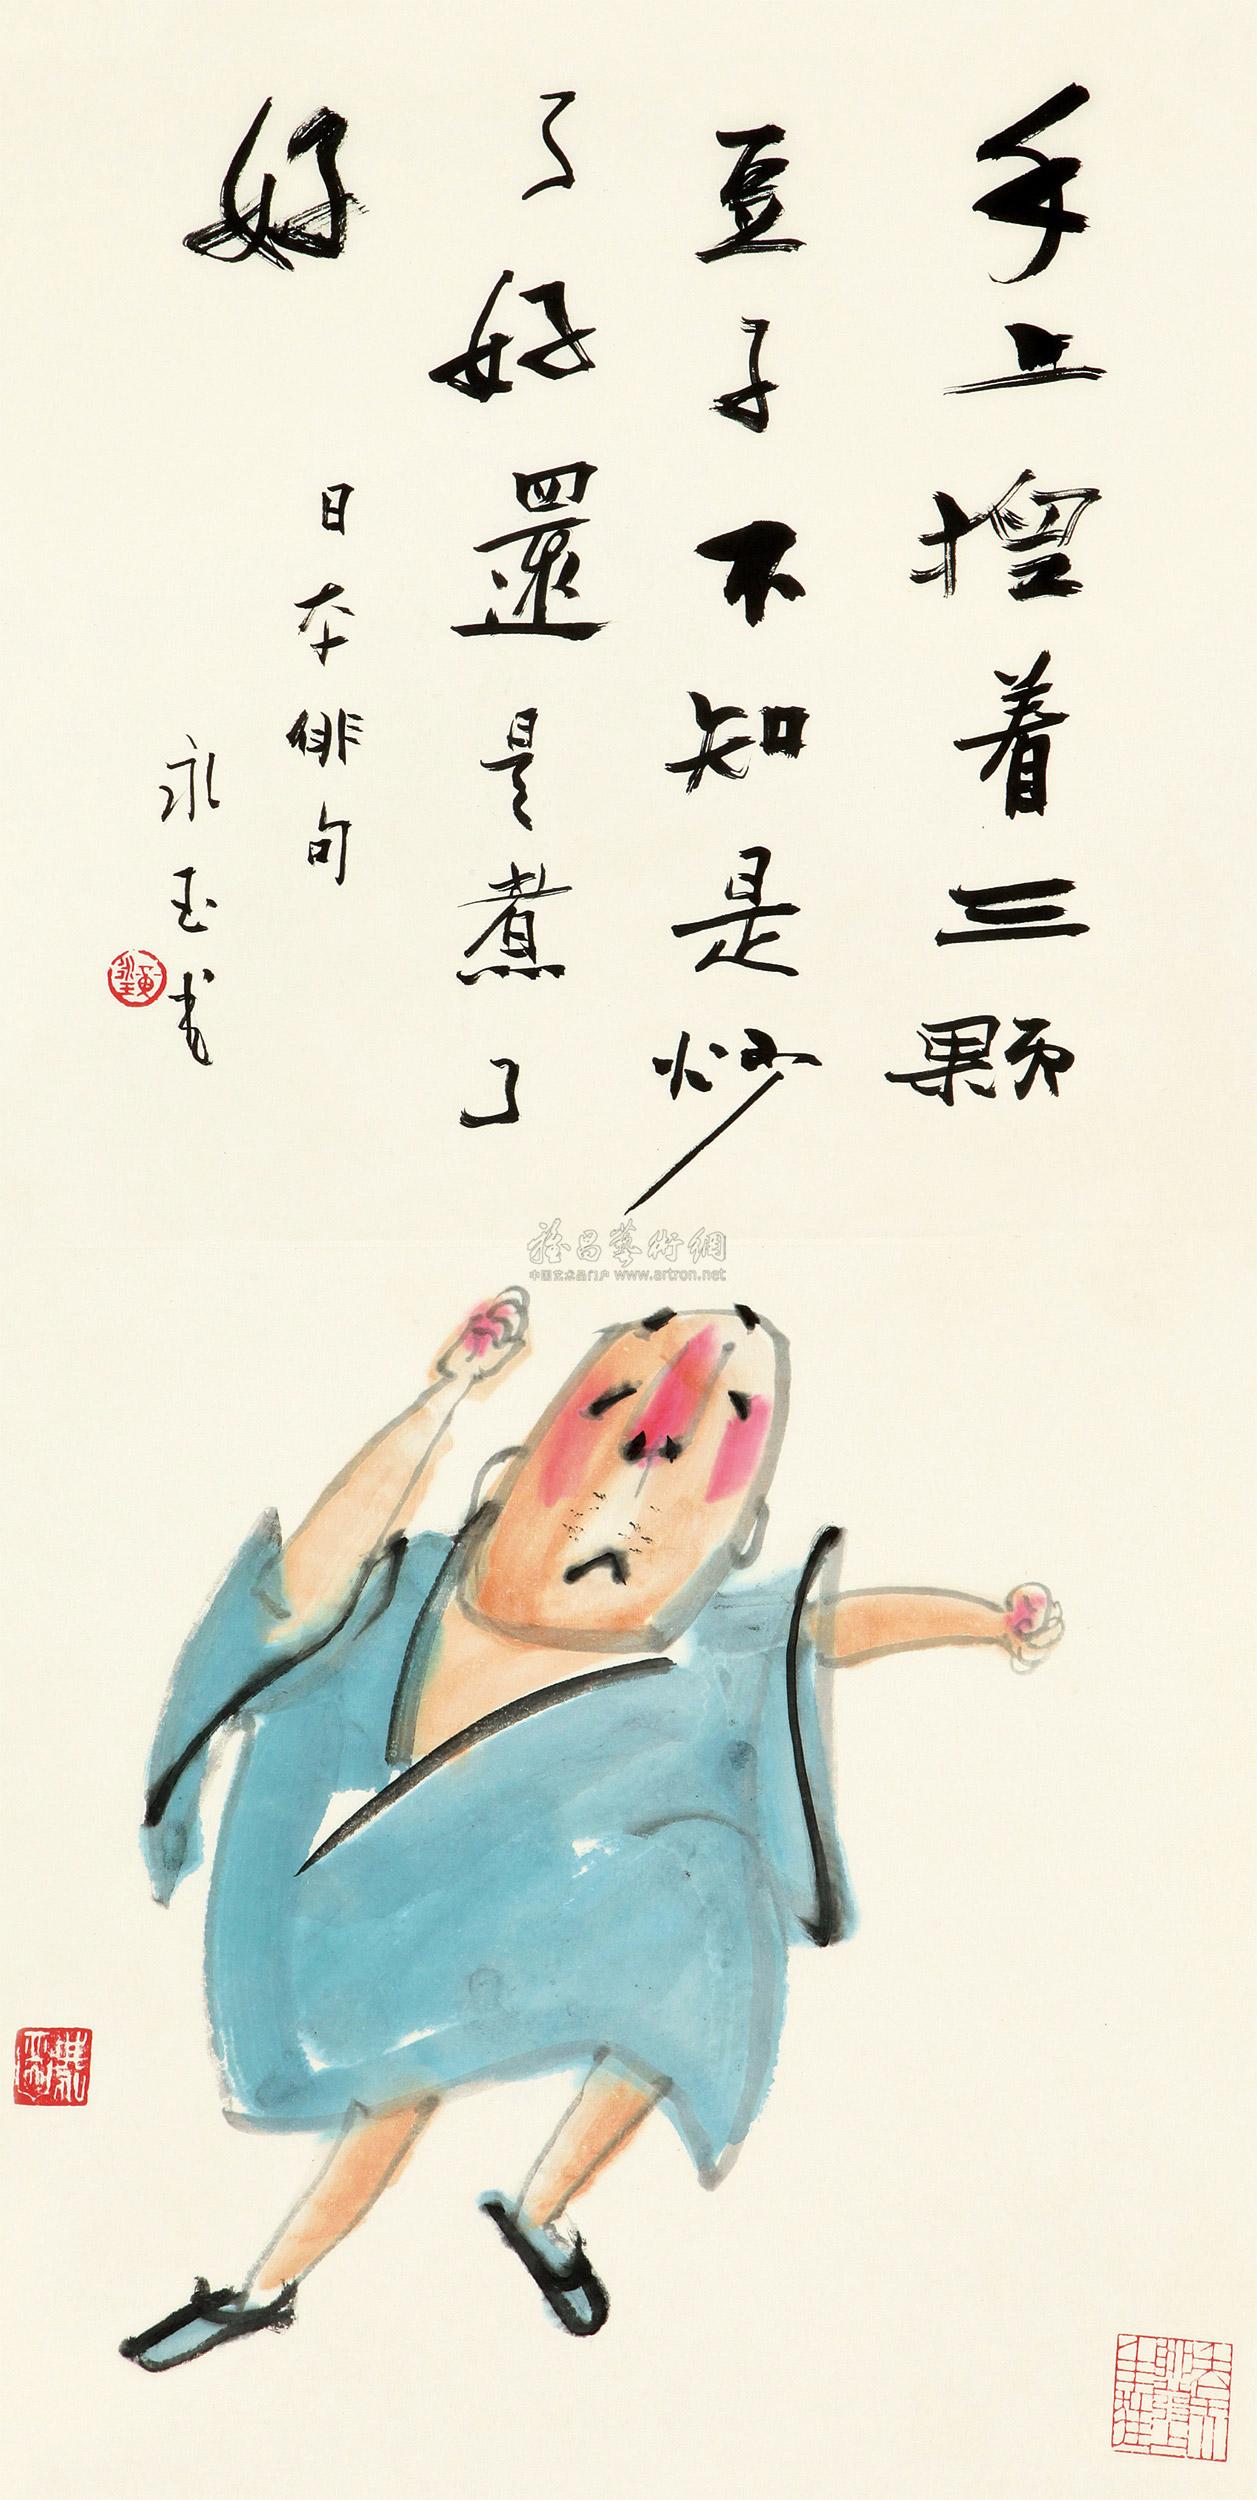 手上揑着三顆
豆子不知是炒
了好還是煮了
好
日本俳句
永玉
雅昌藝術網
中国艺术品门户 www.artron.net